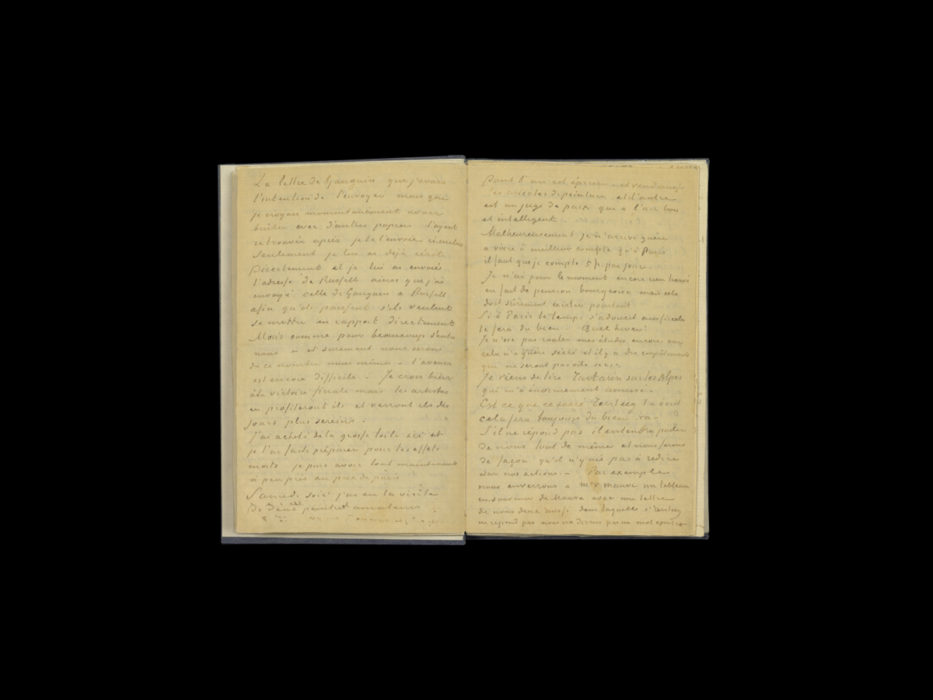 La lettre de Gauguin que j'avais
l'intention de t'envoyer mais que
je croyais momentanément avoir
brûlée avec d'autres papiers l'ayant
retrouvée après je te l'envoie
Seulement je lui ai déjà écrit
directement et je lui ai envoyé
l'adresse de Russell ainsi que j'ai
envoyé celle de Gauguin à Russell
afin qu'ils puissent s'ils veulent
se mettre en rapport directement
Mais comme pour beaucoup d'entre
nous – et sûrement nous serons
de ce nombre nous mêmes – l'avenir
est encore difficile – Je crois bien
à la victoire finale mais les artistes
en profiteront ils et verront ils des
jours plus sereins.
J'ai acheté de la grosse toile ici et
je l'ai fait préparer pour les effets
mats je puis avoir tout maintenant
à peu près au prix de Paris
Samedi soir j'ai eu la visite
de deux peintres amateurs
Dont l'un est épicier et vend aussi
des articles de peinture et l'autre
est un juge de paix qui a l'air bon
et intelligent
Malheureusement je n'arrive guère
à vivre à meilleur compte qu'à Paris
il faut que je compte 5 f. par jour
Je n'ai pour le moment encore rien trouvé
en fait de pension bourgeoise mais cela
doit sûrement exister pourtant
Si à Paris le temps s'adoucit aussi cela
te fera du bien. Quel hiver!
Je n'ose pas rouler mes études encore car
cela n'a guère séché et il y a des empâtements
qui ne seront pas vite secs.
Je viens de lire Tartarin sur les Alpes
qui m'a énormément amusé.
Est ce que ce sacré Tersteeg t'a écrit
cela fera toujours du bien – va –
S'il ne répond pas il entendra parler
de nous tout de même et nous ferons
de façon qu'il n'y ait pas à redire
sur nos actions. – Par exemple
nous enverrons à me v. Mauve un tableau
en souvenir de Mauve avec une lettre
de nous deux aussi dans laquelle si Tersteeg
ne répond pas nous ne dirons pas un mot contre